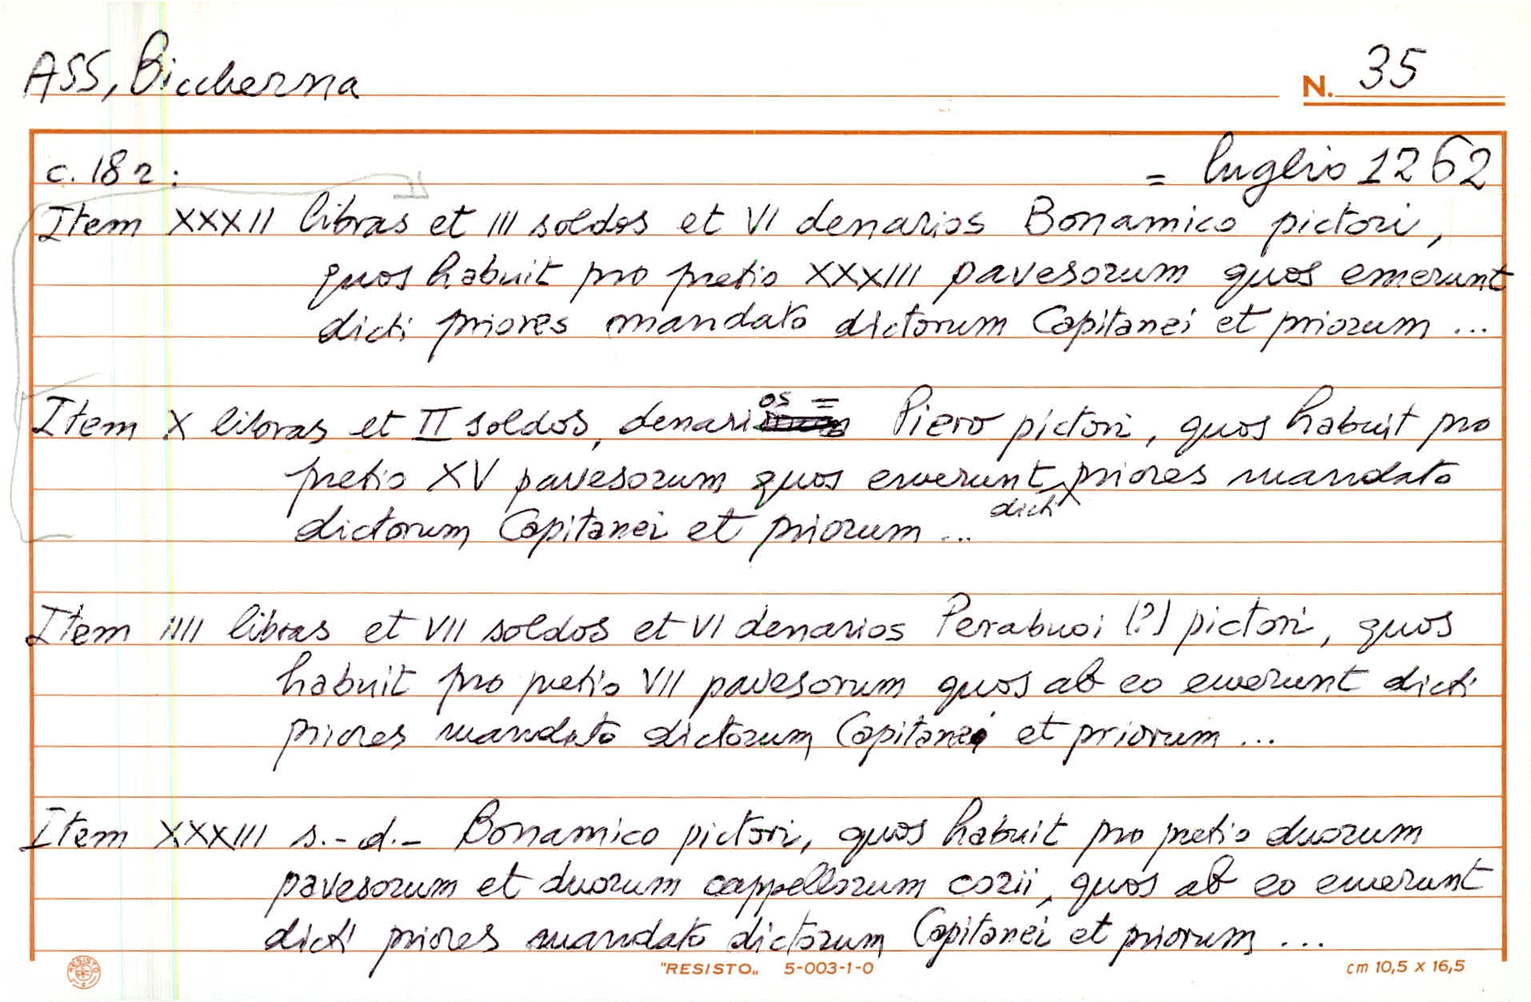 ASS, Biccherna
N. 35
c. 18 r:
= luglio 1262
Item XXXII libras et III soldos et VI denarios Bonamico pictori,
quos habuit pro pretio XXXIII pavesorum quos emerunt
dicti priores mandato dictorum Capitanei et priorum ...
os =
Item X libras et II soldos, denari Piero pictori, quos habuit pro
pretio XV pavesorum quos emerunt priores mandato
dicti
dictorum Capitanei et priorum ...
Item IIII libras et VII soldos et VI denarios Perabuoi (?) pictori, quos
habuit pro pretio VII pavesorum quos ab eo emerunt dicti
priores mandato dictorum Capitanei et priorum ...
Item XXXIII s.- d.- Bonamico pictori, quos habuit pro pretio duorum
pavesorum et duorum cappellorum corii, quos ab eo emerunt
dicti priores mandato dictorum Capitanei et priorum ...
RESISTO
"RESISTO„ 5-003-1-0
cm 10,5 x 16,5